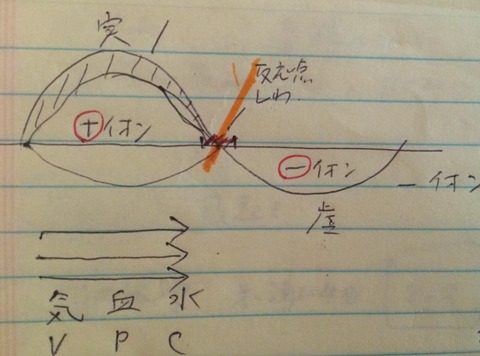 実
反応点
しわ
＋イオン
－イオン
－イオン
虚
気 血 水
V P C